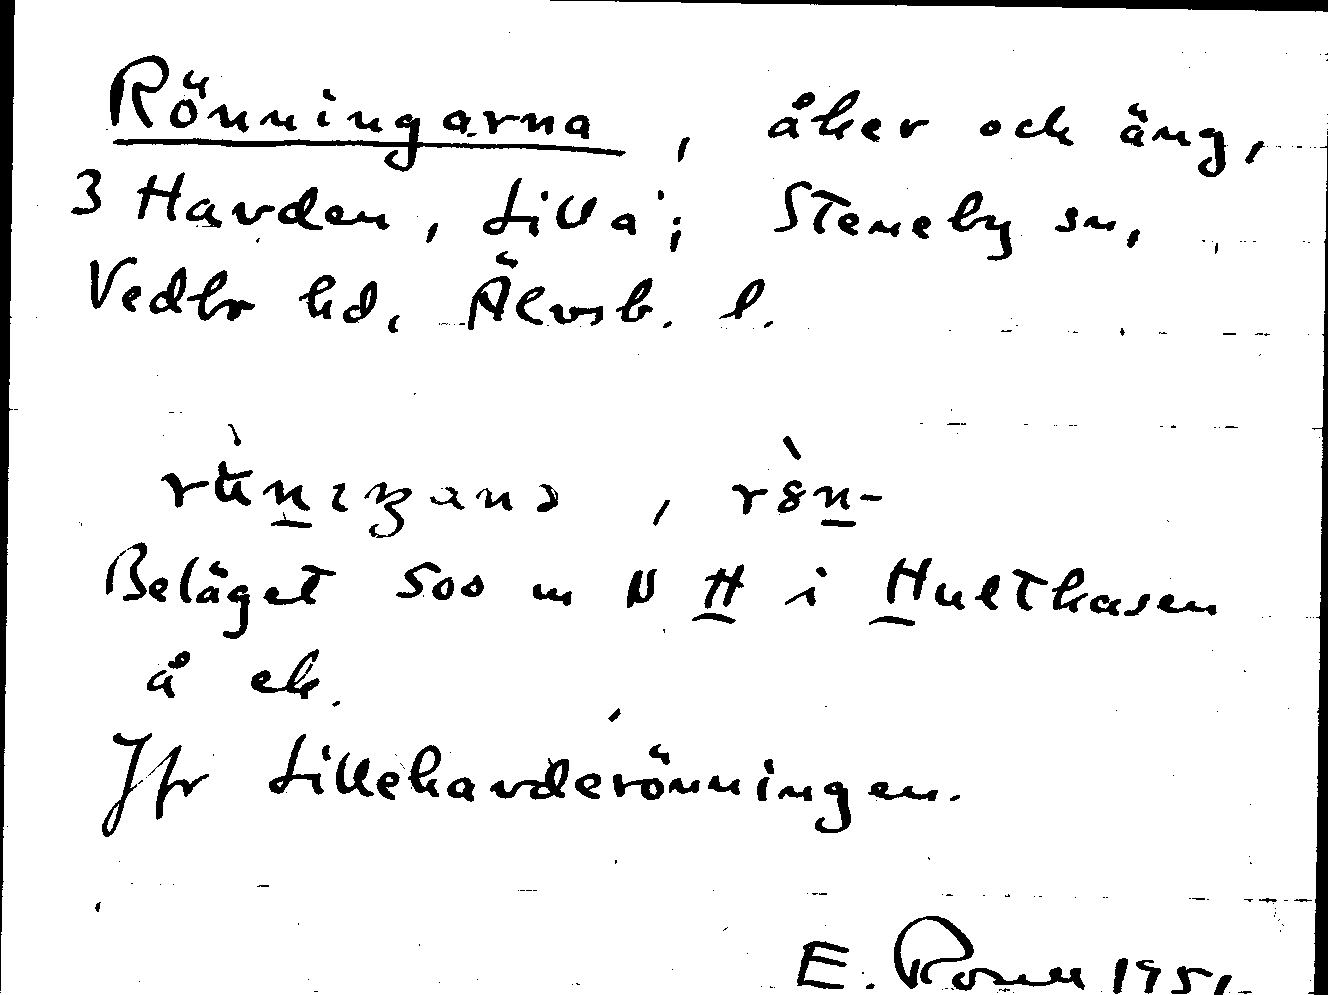 Rönningarna, åker och äng,
3 Havden, Lilla; Steneby sn,
Vedbr hd, Älvsb. l.
Beläget 500 m N H i Hultkasen
å ek.
Jfr Lillehavderönningen.
E. 1951